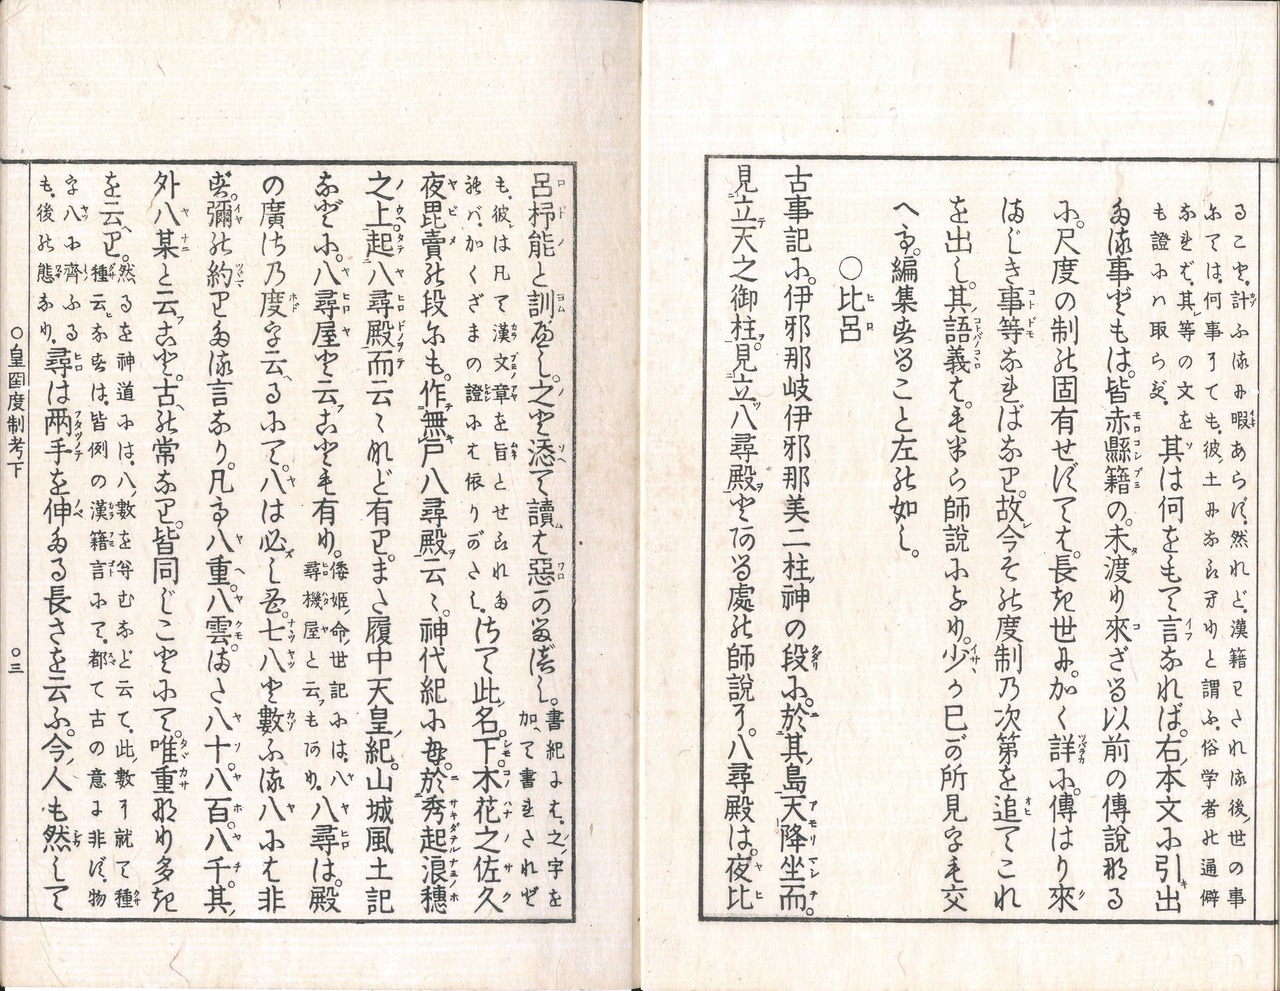 るこそ。計ふ
ふては。何事にても。彼土
なれど。其等の文を
も證には取らず。
其は何をもて言なれば。右本文に引出
たる事どもは。皆赤縣籍の。未渡り來ざる以前の傳說なる
に。尺度の制の固有せずては。長き世に。かく詳に。傳はり來
まじき事等なればなり。故今その度制乃次第を追てこれ
を出し。其語義は。
師說により。少か己が所見をも交
へて。編集することと左の如し。
○比呂
古事記に。伊邪那岐伊邪那美二柱神の段に。於其島天降坐而。
見立天之御柱。見立八尋殿とある處の師說に。八尋殿は。夜比
呂杼能と訓べし。之を添て讀は惡
書紀には。之字を
加へて書されど
も。彼は凡て漢文章を旨とせられた
れば。かくざまの證には依りがたし。
さて此名。下木花之佐久
夜毘賣の段にも。作無戸八尋殿云々。神代紀に
於秀起浪穗
之上起八尋殿而云々れど有り。また履中天皇紀。山城風土記
などに。八尋屋と云ことも有り。
倭姬命世記には。八
尋機屋と云もあり。
八尋は。殿
の廣さ乃度を云るにて。八は必しも。七八と數ふる八には非
ず。彌の約りたる言なり。凡て八重。八雲。また八十。八百。八千。其
外八某と云こと。古の常なり。皆同じことにて。唯重なり多き
を云へり。
然るを神道には。八數を
むなど云て。此數に就て種
種云なすは。皆例の漢籍言にて。都て古の意に非ず。物
字八に齊ふる
も。後の態なり。
尋は兩手を伸たる長さを云ふ。今人も然して
○皇國度制考下
○三